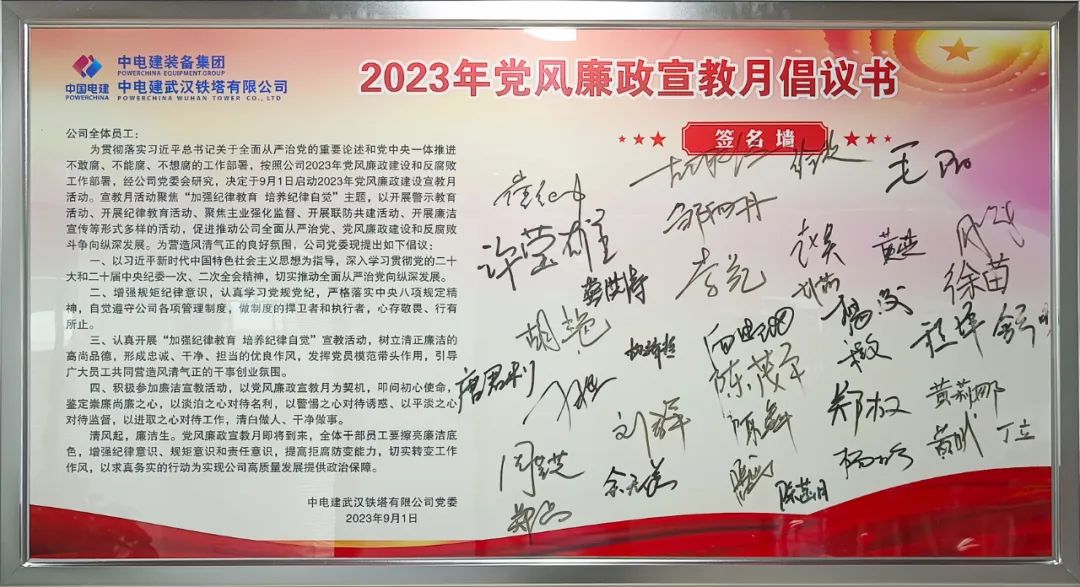 中国电建
POWERCHINA
中电建装备集团
POWERCHINA EQUIPMENT GROUP
中电建武汉铁塔有限公司
POWERCHINA WUHAN TOWER CO., LTD
2023年党风廉政宣教月倡议书
签名墙
公司全体员工：
为贯彻落实习近平总书记关于全面从严治党的重要论述和党中央一体推进
不敢腐、不能腐、不想腐的工作部署，按照公司2023年党风廉政建设和反腐败
工作部署，经公司党委会研究，决定于9月1日启动2023年党风廉政建设宣教月
活动。宣教月活动聚焦“加强纪律教育 培养纪律自觉”主题，以开展警示教育
活动、开展纪律教育活动、聚焦主业强化监督、开展联防共建活动、开展廉洁
宣传等形式多样的活动，促进推动公司全面从严治党、党风廉政建设和反腐败
斗争向纵深发展。为营造风清气正的良好氛围，公司党委现提出如下倡议：
一、以习近平新时代中国特色社会主义思想为指导，深入学习贯彻党的二十
大和二十届中央纪委一次、二次全会精神，切实推动全面从严治党向纵深发展。
二、增强规矩纪律意识，认真学习党规党纪，严格落实中央八项规定精
神，自觉遵守公司各项管理制度，做制度的捍卫者和执行者，心存敬畏、行有
所止。
三、认真开展“加强纪律教育 培养纪律自觉”宣教活动，树立清正廉洁的
高尚品德，形成忠诚、干净、担当的优良作风，发挥党员模范带头作用，引导
广大员工共同营造风清气正的干事创业氛围。
四、积极参加廉洁宣教活动，以党风廉政宣教月为契机，叩问初心使命，
鉴定崇廉尚廉之心，以淡泊之心对待名利，以警惕之心对待诱惑、以平淡之心
对待监督，以进取之心对待工作，清白做人、干净做事。
清风起，廉洁生。党风廉政宣教月即将到来，全体干部员工要擦亮廉洁底
色，增强纪律意识、规矩意识和责任意识，提高拒腐防变能力，切实转变工作
作风，以求真务实的行动为实现公司高质量发展提供政治保障。
中电建武汉铁塔有限公司党委
2023年9月1日
许莹雄
李
胡艳
徐苗
唐君利
陈茂军
程坤
郑权
黄莉娜
刘祥
丁立